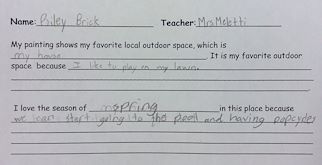 Name: Briley Brick Teacher: Mrs Meletti
My painting shows my favorite local outdoor space, which is
my house. It is my favorite outdoor
space because I like to play on my lawn.
I love the season of spring in this place because
we can start going to the pool and having popcycles